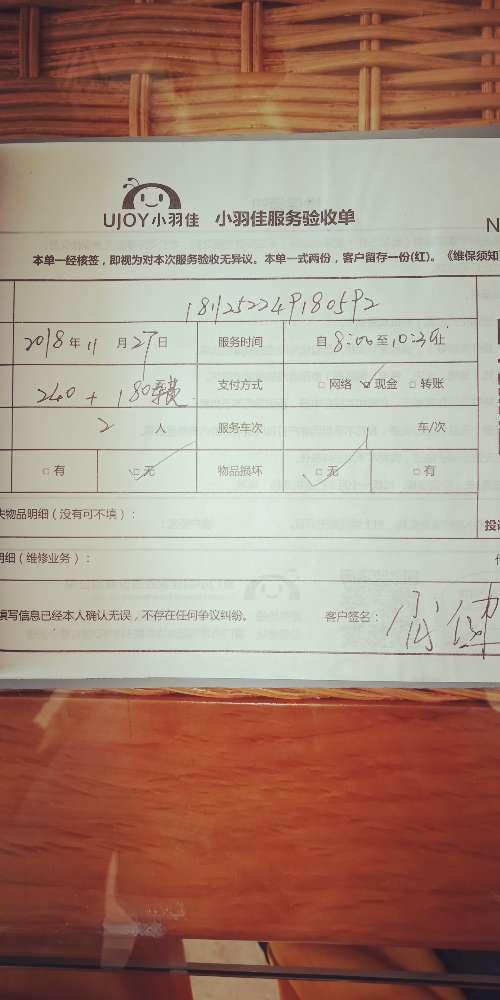 UJOY小羽佳 小羽佳服务验收单
N
本单一经核签，即视为对本次服务验收无异议。本单一式两份，客户留存一份(红)。《维保须知
2018年11月27日 服务时间 自8:00至10:30止
240 + 180 支付方式 □网络 ☑现金 □转账
2 人 服务车次 1 车/次
□有 ☑无 物品损坏 ☑无 □有
失物品明细（没有可不填）：
投诉
明细（维修业务）：
填写信息已经本人确认无误，不存在任何争议纠纷。 客户签名：